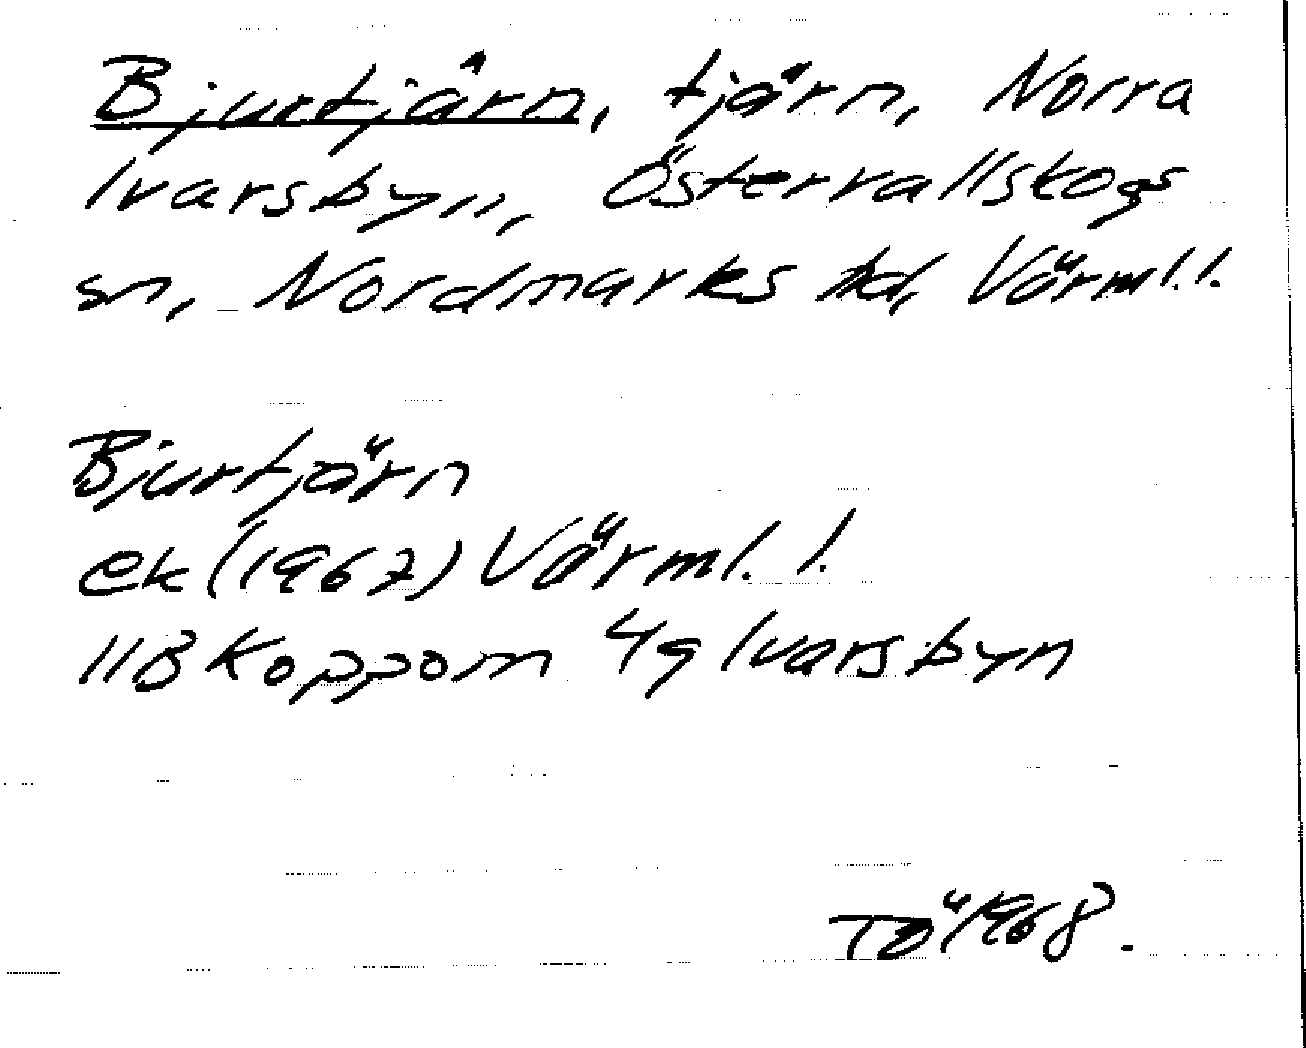 Bjurtjärn, tjärn, Norra
Ivarsbyn, Östervallskogs
sn, Nordmarks hd, Värml. l.
Bjurtjärn
ek (1967) Värml. l.
11B Koppom 4g Ivarsbyn
TÖ 1968.